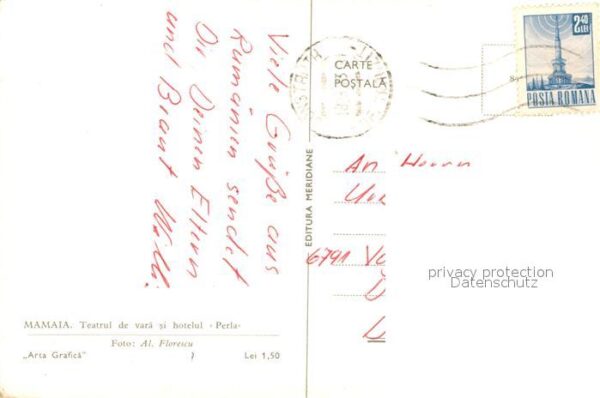 Viele Grüße aus
Rumänien sendet
Dir Deinen Eltern
und Braut Willi.
MAMAIA. Teatrul de vară și hotelul «Perla»
Foto: Al. Florescu
„Arta Grafică" Lei 1,50
EDITURA MERIDIANE
CARTE
POȘTALĂ
2,40
LEI
POSTA ROMANA
An Herrn
6791
privacy protection
Datenschutz